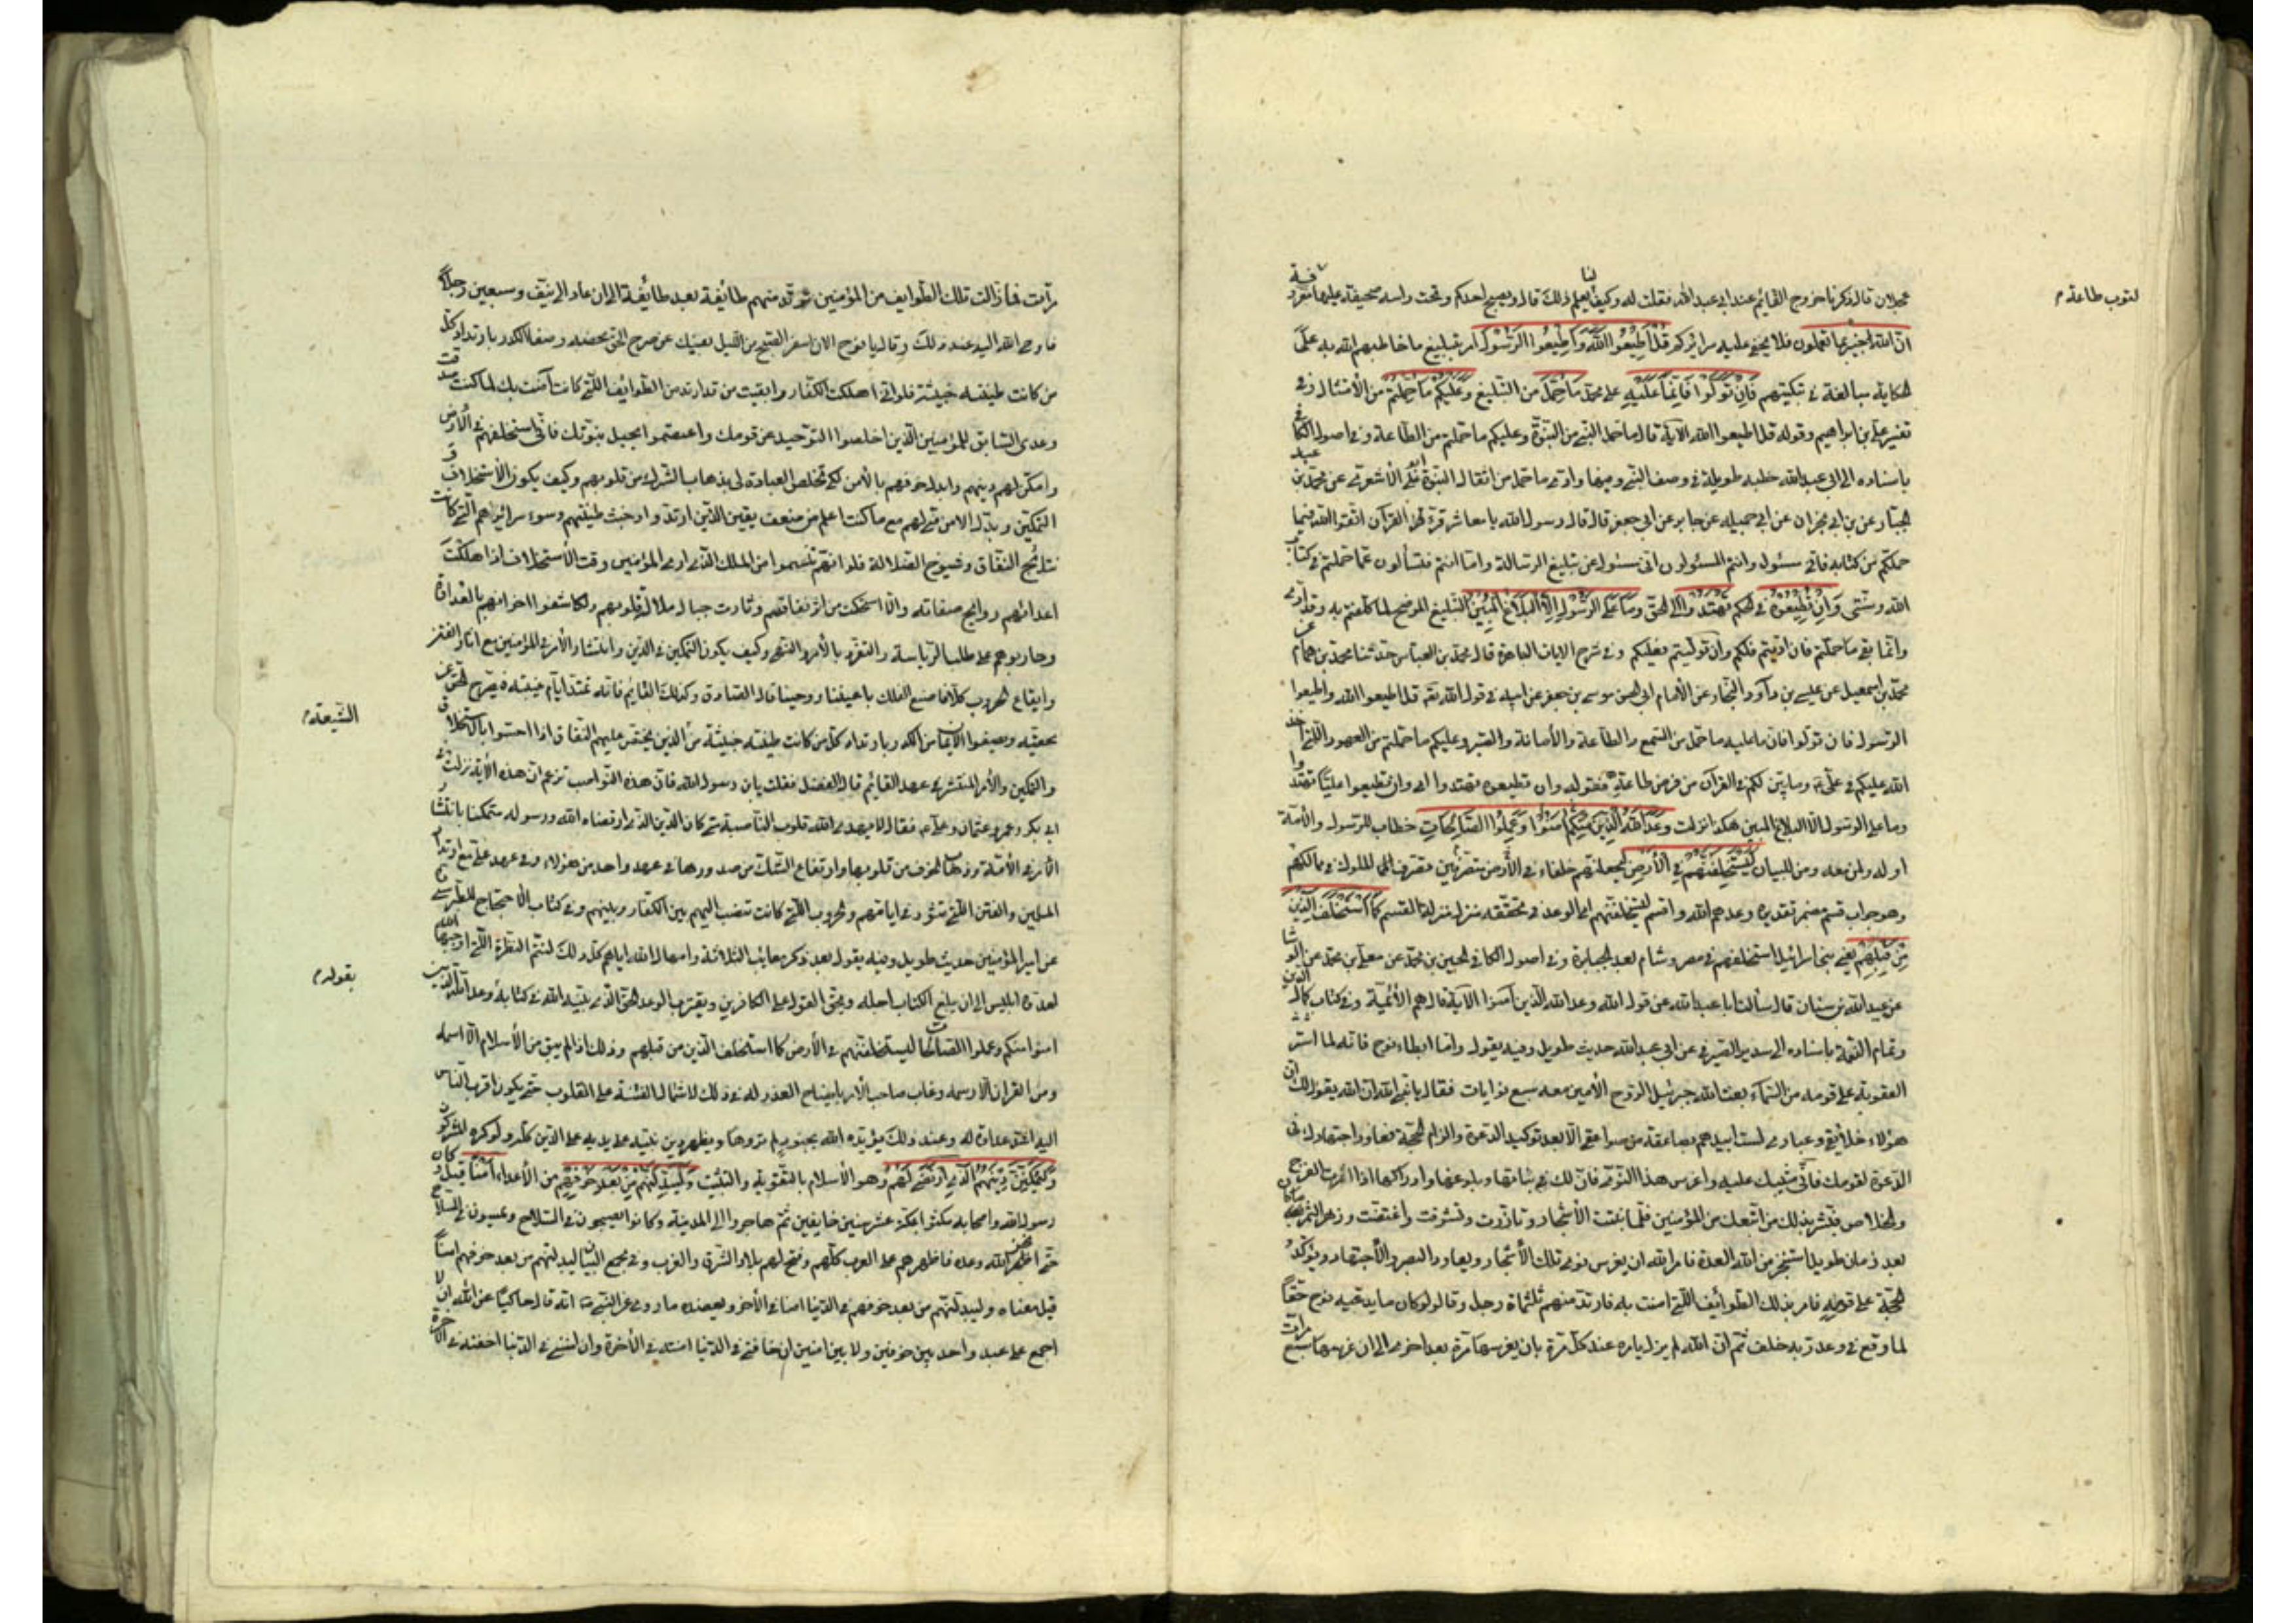 لتوب طاعة م
عجلان قال ذكرنا خروج القائم عند ابي عبد الله فقلت له وكيف لنا بعلم ذلك قال يصبح احدكم وتحت راسه صحيفة عليها طاعة معروفة
انّ الله خبير بما تعملون فلا يخفى عليه سرائركم قُلْ اَطِيْعُوا اللّٰهَ وَاَطِيعُوا الرَّسُوْلَ امر بتبليغ ما خاطبهم الله به على
الحكاية مبالغة في تبكيتهم فَاِنْ تَوَلَّوْا فَاِنَّمَا عَلَيْهِ على محمد مَا حُمِّلَ من التبليغ وَعَلَيْكُم مَا حُمِّلْتُم من الأمتثال وفي
تفسير علي بن ابراهيم وقوله قل اطيعوا الله الآية قال ما حمل النبي من النبوّة وعليكم ما حملتم من الطاعة وفي اصول الكافي
باسناده الى ابي عبد الله خطبة طويلة في وصف النبي وفيها وادى ما حمل من اثقال النبوة الأشعري عن محمد بن عبد
الجبار عن بن ابي نجران عن ابي جميلة عن جابر عن ابي جعفر قال قال رسول الله يا معاشر قراء القرآن اتقوا الله فيما
حملكم من كتابه فاني مسئول وانتم المسئولون اني مسئول عن تبليغ الرسالة واما انتم فتسألون عما حملتم من كتاب
الله وسنتي وَاِنْ تُطِيْعُوْهُ في حكمه تَهْتَدُوْا الى الحق وَمَا عَلَى الرَّسُوْلِ اِلَّا الْبَلَاغُ الْمُبِيْنُ التبليغ الموضح لما كلفتم به وقد ادى
وانما بقي ما حملتم فان اديتم فلكم وان توليتم فعليكم وفي شرح الايات الباهرة قال محمد بن العباس حدثنا محمد بن همام عن
محمد بن اسمعيل عن عيسى بن داود النجار عن الأمام ابي الحسن موسى بن جعفر عن ابيه في قول الله قل اطيعوا الله واطيعوا
الرسول فان تولوا فانما عليه ما حمل من السمع والطاعة والأمانة والصبر وعليكم ما حملتم من العهود التي اخذ
الله عليكم في علي وما بيّن لكم في القرآن من فرض طاعته فقوله وان تطيعوه تهتدوا اي وان تطيعوا عليّا تهتدوا
وما على الرسول الا البلاغ المبين هكذا نزلت وَعَدَ اللّٰهُ الَّذِيْنَ مِنْكُمْ اٰمَنُوْا وَعَمِلُوا الصَّالِحَاتِ خطاب للرسول والأمة
او له ولمن معه ومن للبيان لَيَسْتَخْلِفَنَّهُمْ فِي الْاَرْضِ ليجعلنهم خلفاء في الأرض متصرفين تصرف الملوك في ممالكهم
وهو جواب قسم مضمر تقديره وعدهم الله واقسم ليستخلفنهم او الوعد في تحققه منزل منزلة القسم كَمَا اسْتَخْلَفَ الَّذِيْنَ
مِنْ قَبْلِهِمْ يعني بني اسرائيل استخلفهم في مصر وشام بعد الجبابرة وفي اصول الكافي الحسين بن محمد عن معلى بن محمد عن الوشا
عن عبد الله بن سنان قال سألت ابا عبد الله عن قول الله وعد الله الذين آمنوا الآية قال هم الأئمة وفي كتاب كمال الدين
وتمام النعمة باسناده الى سدير الصيرفي عن ابي عبد الله حديث طويل وفيه يقول واما ابطاء نوح فانه لما استنزل
العقوبة على قومه من السماء بعث الله جبرئيل الروح الأمين معه سبع نوايات فقال يا نبي الله ان الله يقول لك ان
هؤلاء خلايقي وعبادي لست ابيدهم بصاعقة من صواعقي الا بعد توكيد الدعوة والزام الحجة فعاود اجتهادك في
الدعوة لقومك فاني مثيبك عليه واغرس هذا النوى فان لك في نباتها وبلوغها وادراكها اذا اثمرت الفرج
والخلاص فبشر بذلك من اتبعك من المؤمنين فلما نبتت الأشجار وتازرت وتشوقت واغتصنت وزهر الثمر
بعد زمان طويل استنجز من الله العدة فامر الله ان يغرس نوى تلك الأشجار ويعاود الصبر والأجتهاد ويؤكد
الحجة على قومه فامر بذلك الطوائف التي امنت به فارتد منهم ثلثمائة رجل وقالوا لو كان ما يدعيه نوح حقا
لما وقع في وعد ربه خلف ثم ان الله لم يزل يامره عند كل مرة بان يغرسها مرة بعد اخرى الى ان غرسها سبع مرات
مرّات فما زالت تلك الطوايف من المؤمنين ترتد منهم طائفة بعد طائفة الى ان عاد الى نيف وسبعين رجلاً
فاوحى الله اليه عند ذلك وقال يا نوح الان اسفر الصبح من الليل بعينك عن صرح الحق بمحضه وصفا الكدر بارتداد كل
من كانت طينته خبيثة فلو اني اهلكت الكفار وابقيت من قد ارتد من الطوائف التي كانت آمنت بك لما كنت صدقت
وعدي السابق للمؤمنين الذين اخلصوا التوحيد من قومك واعتصموا بحبل نبوتك فاني استخلفهم في الأرض
وامكن لهم دينهم وابدل خوفهم بالأمن لكي تخلص العبادة لي بذهاب الشرك من قلوبهم وكيف يكون الأستخلاف و
التمكين وبدل الامن مني لهم مع ما كنت اعلم من ضعف يقين الذين ارتدوا وخبث طينتهم وسوء سرائرهم التي كانت
نتائج النفاق وشيوخ الضلالة فلو انهم تنسموا من الملك الذي اوتي المؤمنين وقت الأستخلاف اذا اهلكت
اعدائهم روايح صفاته والاستحكمت سرائر نفاقهم وثارت حبال ضلالة قلوبهم ولكاشفوا اخوانهم بالعداوة
وحاربوهم على طلب الرياسة والتفرد بالأمر والنهي وكيف يكون التمكين في الدين وانتشار الأمر في المؤمنين مع اثارة الفتن
وايقاع الحروب كلا فاصنع الفلك باعيننا ووحينا قال الصادق وكذلك القائم فانه تمتد ايام غيبته فيصرح الحق عن
محضه ويصفوا الأيمان من الكدر بارتداد كل من كانت طينته خبيثة من الذين يخشى عليهم النفاق اذا احسوا بالأستخلاف
الشيعة م
والتمكين والأمر المنتشر في عهد القائم قال المفضل فقلت يابن رسول الله فان هذه النواصب تزعم ان هذه الأية نزلت في
ابي بكر وعمر وعثمان وعلي فقال لا يهدى الله قلوب الناصبة متى كان الدين الذي ارتضاه الله ورسوله متمكنا بانتشار
الأمر في الأمة وذهاب الخوف من قلوبها وارتفاع الشك من صدورها في عهد واحد من هؤلاء وفي عهد علي مع ارتداد
المسلمين والفتن التي تثور في ايامهم والحروب التي كانت تنشب اليهم بين الكفار وبينهم وفي كتاب الأحتجاج للطبرسي
عن امير المؤمنين حديث طويل وفيه يقول بعد ذكره معائب الثلاثة وامهال الله اياهم كل ذلك لتتم النظرة التي اوجبها الله
لعدوه ابليس الى ان يبلغ الكتاب اجله ويحق القول على الكافرين ويقترب الوعد الحق الذي بينه الله في كتابه وعد الله الذين
بقوله م
امنوا منكم وعملوا الصالحات ليستخلفنهم في الأرض كما استخلف الذين من قبلهم وذلك اذا لم يبق من الأسلام الا اسمه
ومن القران الا رسمه وغاب صاحب الأمر بايضاح العذر له في ذلك لاشتمال الفتنة على القلوب حتى يكون اقرب الناس
اليه اشد عداوة له وعند ذلك يؤيده الله بجنود لم تروها ويظهر دين نبيه على يديه على الدين كله ولو كره المشركون
وَلَيُمَكِّنَنَّ لَهُمْ دِيْنَهُمُ الَّذِي ارْتَضٰى لَهُمْ وهو الأسلام بالتقوية والتثبيت وَلَيُبَدِّلَنَّهُمْ مِنْ بَعْدِ خَوْفِهِمْ من الأعداء اَمْنًا قيل كان
رسول الله واصحابه مكثوا بمكة عشر سنين خايفين ثم هاجروا الى المدينة وكانوا يصبحون في السلاح ويمسون في السلاح
حتى انجز الله وعده فاظهرهم على العرب كلهم وفتح لهم بلاد الشرق والغرب وفي مجمع البيان ليبدلنهم من بعد خوفهم امنا
قيل معناه وليبدلنهم من بعد خوفهم في الدنيا امنا في الأخرة ويعضده ما روي عن النبي انه قال حاكيا عن الله اني لا
اجمع على عبد واحد بين خوفين ولا بين امنين ان خافني في الدنيا امنته في الأخرة وان امنني في الدنيا اخفته في الأخرة